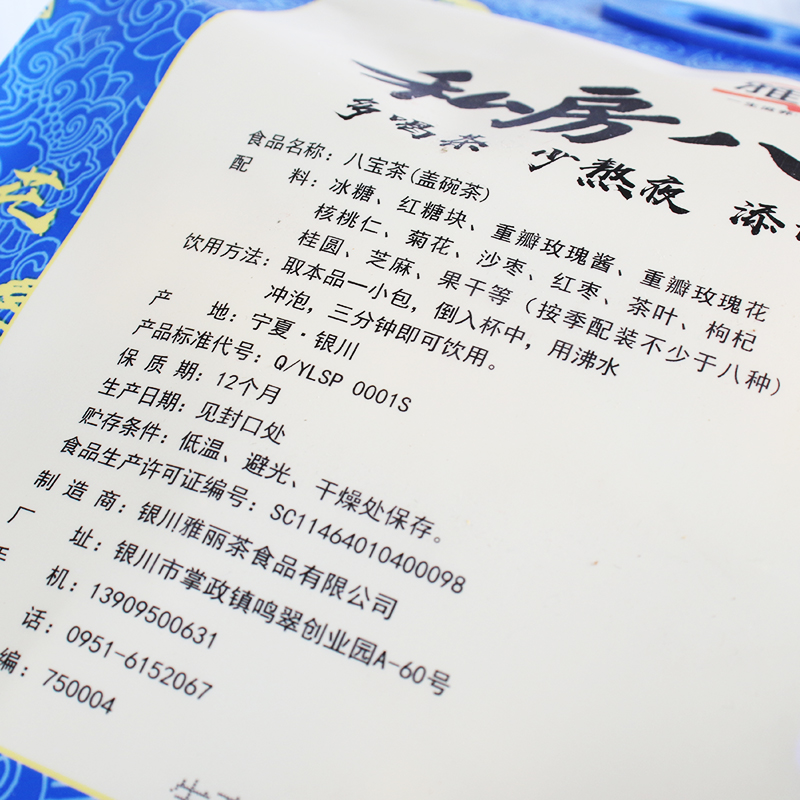 私房八
多喝茶 少熬夜 添
食品名称：八宝茶(盖碗茶)
配 料：冰糖、红糖块、重瓣玫瑰酱、重瓣玫瑰花
核桃仁、菊花、沙枣、红枣、茶叶、枸杞
桂圆、芝麻、果干等（按季配装不少于八种）
饮用方法：取本品一小包，倒入杯中，用沸水
冲泡，三分钟即可饮用。
产 地：宁夏·银川
产品标准代号：Q/YLSP 0001S
保 质 期：12个月
生产日期：见封口处
贮存条件：低温、避光、干燥处保存。
食品生产许可证编号：SC11464010400098
制 造 商：银川雅丽茶食品有限公司
厂 址：银川市掌政镇鸣翠创业园A-60号
手 机：13909500631
话：0951-6152067
编：750004